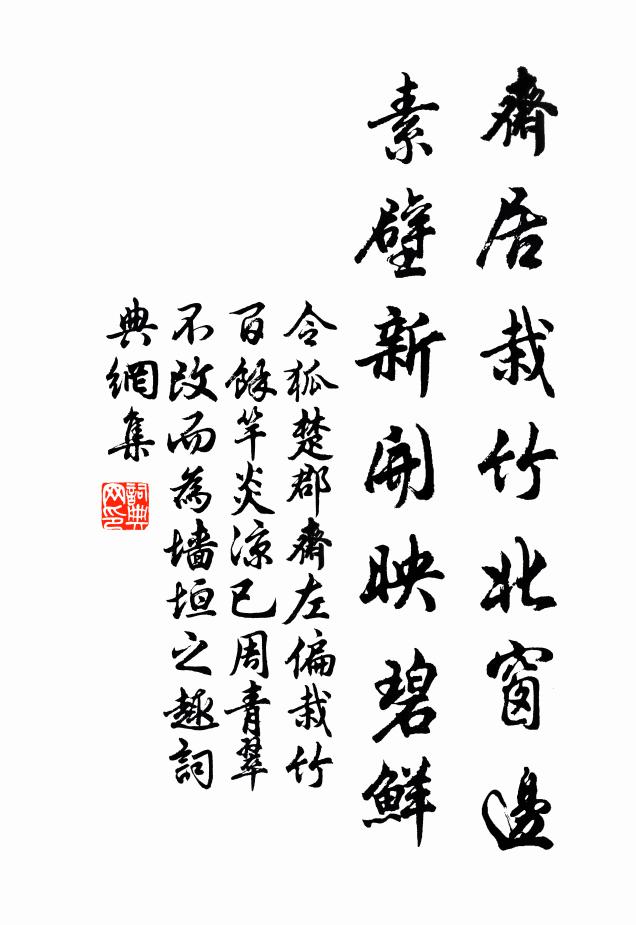 齋居栽竹北窗邊
素壁新開映碧鮮
令狐楚郡齋左偏栽竹
百餘竿炎涼已周青翠
不改而為墻垣之趣詞
典網集
詞典網印